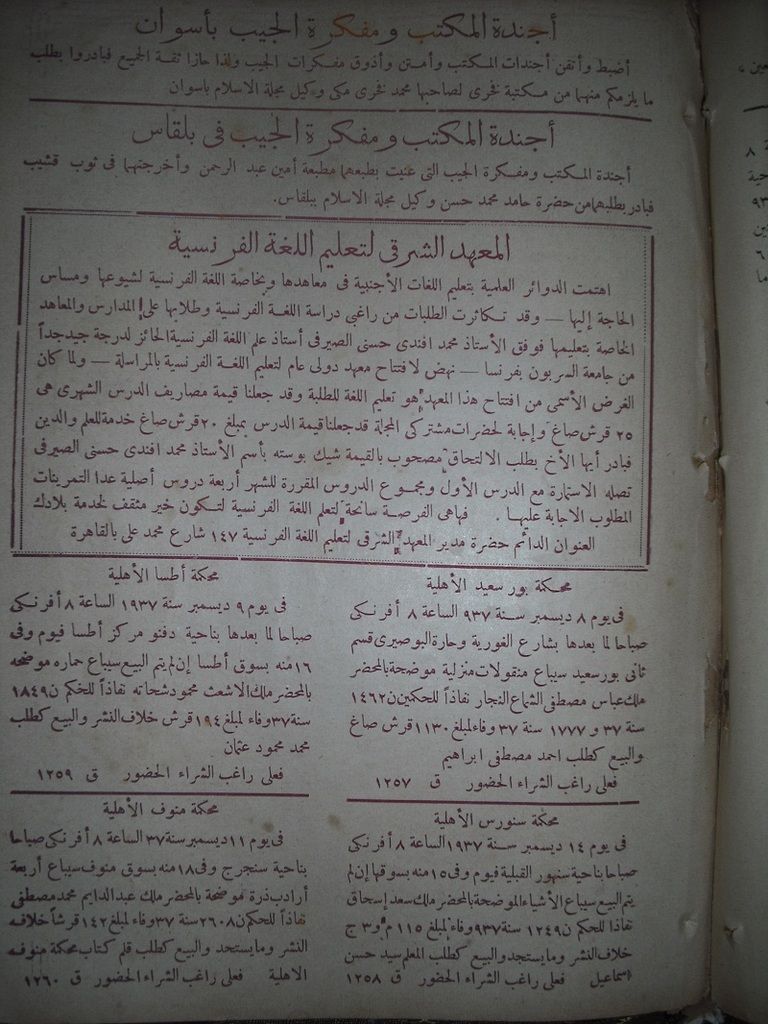 أجندة المكتب ومفكرة الجيب بأسوان
أضبط وأتقن أجندات المكتب وأمتن وأذوق مفكرات الجيب ولذا حازا ثقة الجميع فبادروا بطلب
ما يلزمكم منهما من مكتبة فخرى لصاحبها محمد فخرى مكى وكيل مجلة الاسلام باسوان
أجندة المكتب ومفكرة الجيب فى بلقاس
أجندة المكتب ومفكرة الجيب التى عنيت بطبعهما مطبعة أمين عبد الرحمن وأخرجتهما فى ثوب قشيب
فبادر بطلبهما من حضرة حامد محمد حسن وكيل مجلة الاسلام ببلقاس.
المعهد الشرقى لتعليم اللغة الفرنسية
اهتمت الدوائر العلمية بتعليم اللغات الأجنبية فى معاهدها وبخاصة اللغة الفرنسية لشيوعها ومساس
الحاجة إليها — وقد تكاثرت الطلبات من راغبى دراسة اللغة الفرنسية وطلابها على المدارس والمعاهد
الخاصة بتعليمها فوفق الأستاذ محمد افندى حسنى الصيرفى أستاذ علم اللغة الفرنسية الحائز لدرجة جيدجداً
من جامعة السربون بفرنسا — نهض لافتتاح معهد دولى عام لتعليم اللغة الفرنسية بالمراسلة — ولما كان
الغرض الأسمى من افتتاح هذا المعهد هو تعليم اللغة للطلبة وقد جعلنا قيمة مصاريف الدرس الشهرى هى
٢٥ قرش صاغ وإجابة لحضرات مشتركى المجلة قد جعلنا قيمة الدرس بمبلغ ٢٠ قرش صاغ خدمة للعلم والدين
فبادر أيها الأخ بطلب الالتحاق مصحوب بالقيمة شيك بوسته بأسم الأستاذ محمد افندى حسنى الصيرفى
تصله الاستمارة مع الدرس الأول ومجموع الدروس المقررة للشهر أربعة دروس أصلية عدا التمرينات
المطلوب الاجابة عليها . فهاهى الفرصة سانحة لتعلم اللغة الفرنسية لتكون خير مثقف لخدمة بلادك
العنوان الدائم حضرة مدير المعهد الشرقى لتعليم اللغة الفرنسية ١٤٧ شارع محمد على بالقاهرة
محكمة بور سعيد الأهلية
فى يوم ٨ ديسمبر سنة ٩٣٧ الساعة ٨ أفرنكى
صباحا لما بعدها بشارع الغورية وحارة البوصيرى قسم
ثانى بورسعيد سيباع منقولات منزلية موضحة بالمحضر
ملك عباس مصطفى الشماع النجار نفاذاً للحكمين ن ١٤٦٢
سنة ٣٧ و ١٧٧٧ سنة ٣٧ وفاء لمبلغ ١١٣٠ قرش صاغ
والبيع كطلب احمد مصطفى ابراهيم
فعلى راغب الشراء الحضور ق ١٢٥٧
محكمة أطسا الأهلية
فى يوم ٩ ديسمبر سنة ١٩٣٧ الساعة ٨ أفرنكى
صباحا لما بعدها بناحية دفنو مركز أطسا فيوم وفى
١٦ منه بسوق أطسا إن لم يتم البيع سيباع حماره موضحه
بالمحضر ملك الاشعث محمود شحاته نفاذاً للحكم ن ١٨٤٩
سنة ٣٧ وفاء لمبلغ ١٩٤ قرش خلاف النشر والبيع كطلب
محمد محمود عثمان
فعلى راغب الشراء الحضور ق ١٢٥٩
محكمة سنورس الأهلية
فى يوم ١٤ ديسمبر سنة ١٩٣٧ الساعة ٨ أفرنكى
صباحا بناحية سنهور القبلية فيوم وفى ١٥ منه بسوقها إن لم
يتم البيع سيباع الأشياء الموضحة بالمحضر ملك سعد إسحاق
نفاذا للحكم ن ١٢٤٩ سنة ٩٣٧ وفاء لمبلغ ١١٥ م و ٣ ج
خلاف النشر وما يستجد والبيع كطلب المعلم سيد حسن
اسماعيل فعلى راغب الشراء الحضور ق ١٢٥٨
محكمة منوف الأهلية
فى يوم ١١ ديسمبر سنة ٣٧ الساعة ٨ أفرنكى صباحا
بناحية سنجرج وفى ١٨ منه بسوق منوف سيباع أربعة
أرادب ذرة موضحة بالمحضر ملك عبد الدايم محمد مصطفى
نفاذاً للحكم ن ٢٦٠٨ سنة ٣٧ وفاء لمبلغ ١٤٢ قرشاً خلاف
النشر وما يستجد والبيع كطلب قلم كتاب محكمة منوف
الاهلية فعلى راغب الشراء الحضور ق ١٢٦٠